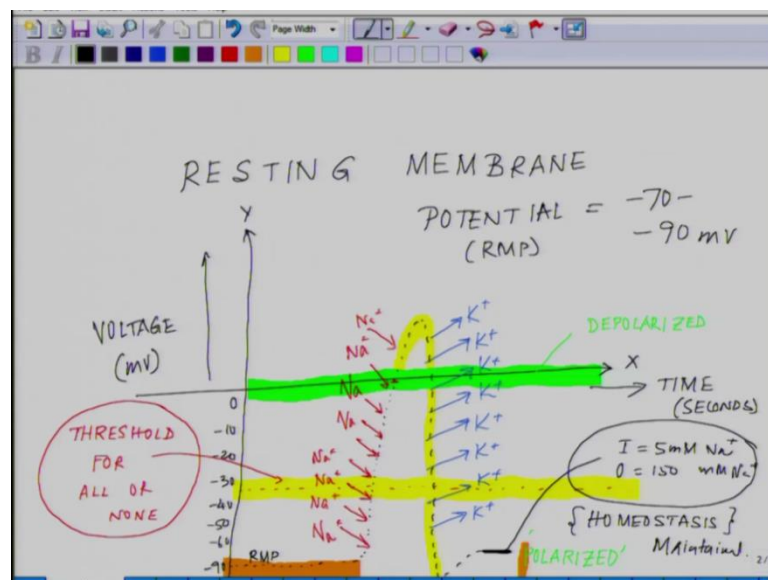 Page Width
B I
RESTING MEMBRANE
POTENTIAL = -70-
(RMP) -90 mV
Y
VOLTAGE
(mV)
Na+ K+
K+
DEPOLARIZED
Na+ K+
X
Na K+
TIME
(SECONDS)
0
-10
-20
-30
-40
-50
-60
-90
THRESHOLD
FOR
ALL OR
NONE
Na K+
Na+ K+
Na+ K+
Na+ K+
Na+
I = 5mM Na+
O = 150 mM Na+
{HOMEOSTASIS}
Maintained.
RMP
'POLARIZED'